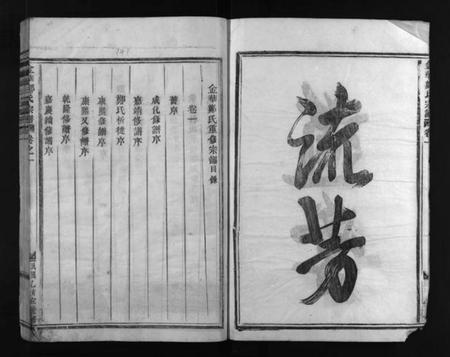 流芳
金華鄭氏重修宗譜目錄
卷一
舊序
成化修譜序
嘉靖修譜序
鄭氏析徙序
康熙修譜序
康熙又修譜序
乾隆修譜序
嘉慶續修譜序